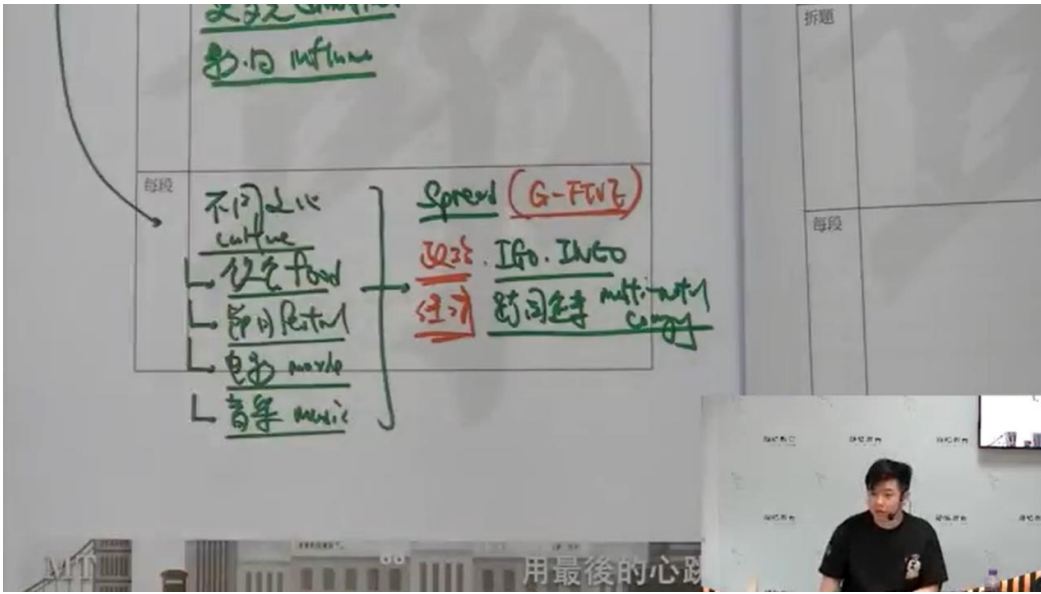 影响 influence
拆題
每段
不同文化
culture
饮食 food
節日 festival
电影 movie
音乐 music
Spread (G-FIVE)
政治. IGO. INGO
经济 跨国企业 multi-natnl
compy
每段
MT
用最後的心跳